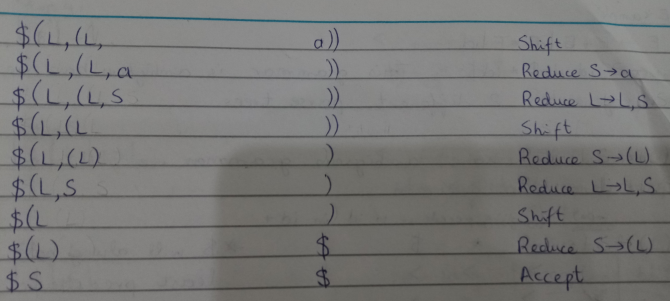 $(L,(L, a)) Shift
$(L,(L,a )) Reduce S→a
$(L,(L,S )) Reduce L→L,S
$(L,(L )) Shift
$(L,(L) ) Reduce S→(L)
$(L,S ) Reduce L→L,S
$(L ) Shift
$(L) $ Reduce S→(L)
$S $ Accept